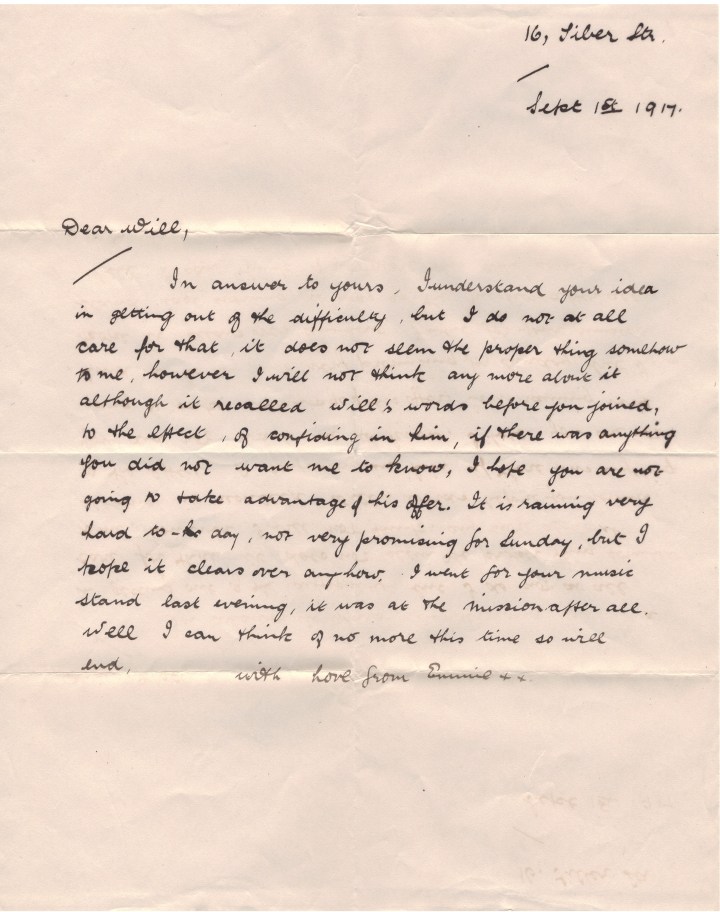 16, Siber Str.
Sept 1st 1917.
Dear Will,
In answer to yours, I understand your idea
in getting out of the difficulty, but I do not at all
care for that, it does not seem the proper thing somehow
to me, however I will not think any more about it
although it recalled Will's words before you joined,
to the effect, of confiding in him, if there was anything
you did not want me to know, I hope you are not
going to take advantage of his offer. It is raining very
hard to-day, not very promising for Sunday, but I
hope it clears over anyhow. I went for your music
stand last evening, it was at the mission after all.
Well I can think of no more this time so will
end, with love from Emmie x x.